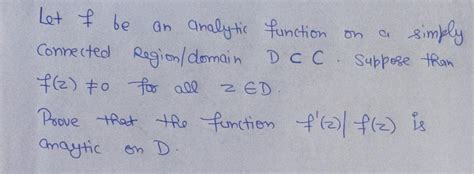 Let f be an analytic function on a simply
Connected Region/domain D ⊂ C. Suppose than
f(z) ≠ 0 for all z ∈ D.
Prove that the function f'(z)/f(z) is
anaytic on D.